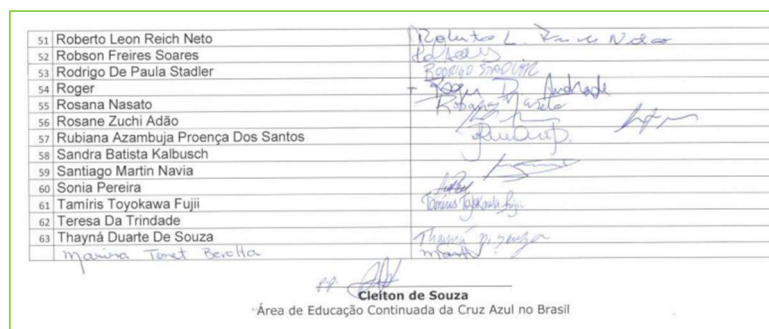 51 Roberto Leon Reich Neto Roberto L.
52 Robson Freires Soares
53 Rodrigo De Paula Stadler RODRIGO STADLER
54 Roger Roger D. Andrade
55 Rosana Nasato Rosana Nasato
56 Rosane Zuchi Adão
57 Rubiana Azambuja Proença Dos Santos
58 Sandra Batista Kalbusch
59 Santiago Martin Navia
60 Sonia Pereira
61 Tamíris Toyokawa Fujii Tamíris Toyokawa Fujii
62 Teresa Da Trindade
63 Thayná Duarte De Souza Thayná D. Souza
Marina
Cleiton de Souza
Área de Educação Continuada da Cruz Azul no Brasil